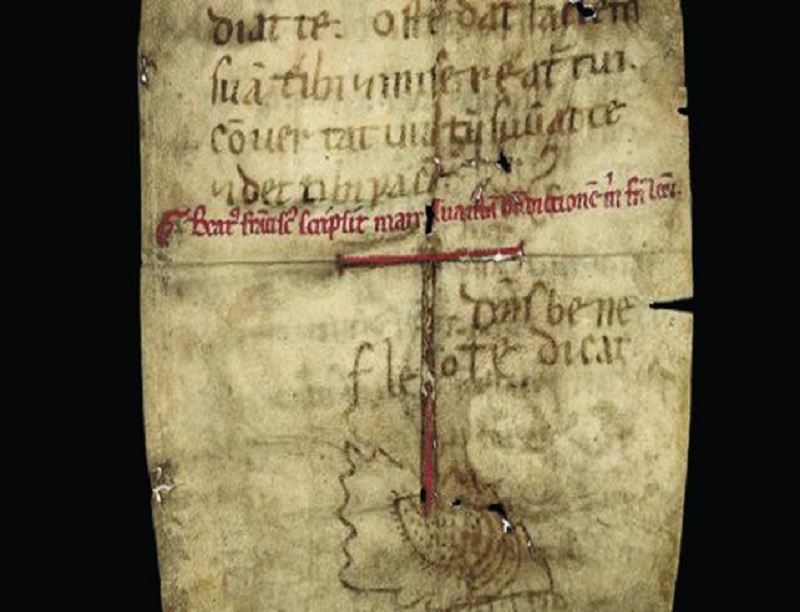 diat te. oſtēdat faciem
ſuā tibi ⁊ miſereat̃ tui.
cōuertat uultū ſuū ad te
⁊ det tibi pacē
Beatꝰ franciſcꝰ ſcripſit manu ſua iſtā bn̄dictionē m̄ fr̄i leōi.
dn̄ſ bene
f leo te dicat